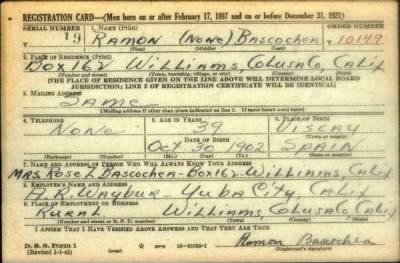 REGISTRATION CARD—(Men born on or after February 17, 1897 and on or before December 31, 1921)
SERIAL NUMBER 1. NAME (Print) ORDER NUMBER
19 RAMON (NONE) BASCOCHEA 10149
(First) (Middle) (Last)
2. PLACE OF RESIDENCE (Print)
BOX 162 WILLIAMS, COLUSA CO CALIF
(Number and street) (Town, township, village, or city) (County) (State)
[THE PLACE OF RESIDENCE GIVEN ON THE LINE ABOVE WILL DETERMINE LOCAL BOARD
JURISDICTION; LINE 2 OF REGISTRATION CERTIFICATE WILL BE IDENTICAL]
3. MAILING ADDRESS
SAME
[Mailing address if other than place indicated on line 2. If same insert word same]
4. TELEPHONE 5. AGE IN YEARS 6. PLACE OF BIRTH
NONE 39 VISCAY
DATE OF BIRTH (Town or county)
OCT 30 1902 SPAIN
(Exchange) (Number) (Mo.) (Day) (Yr.) (State or country)
7. NAME AND ADDRESS OF PERSON WHO WILL ALWAYS KNOW YOUR ADDRESS
MRS ROSE L BASCOCHEA-BOX 162-WILLIAMS, CALIF
8. EMPLOYER'S NAME AND ADDRESS
A.R. WAYBUR YUBA CITY, CALIF
9. PLACE OF EMPLOYMENT OR BUSINESS
RURAL WILLIAMS, COLUSA CO CALIF
(Number and street or R. F. D. number) (Town) (County) (State)
I AFFIRM THAT I HAVE VERIFIED ABOVE ANSWERS AND THAT THEY ARE TRUE.
D. S. S. Form 1
(Revised 1-1-42) Ramon Bascochea
(Registrant's signature)